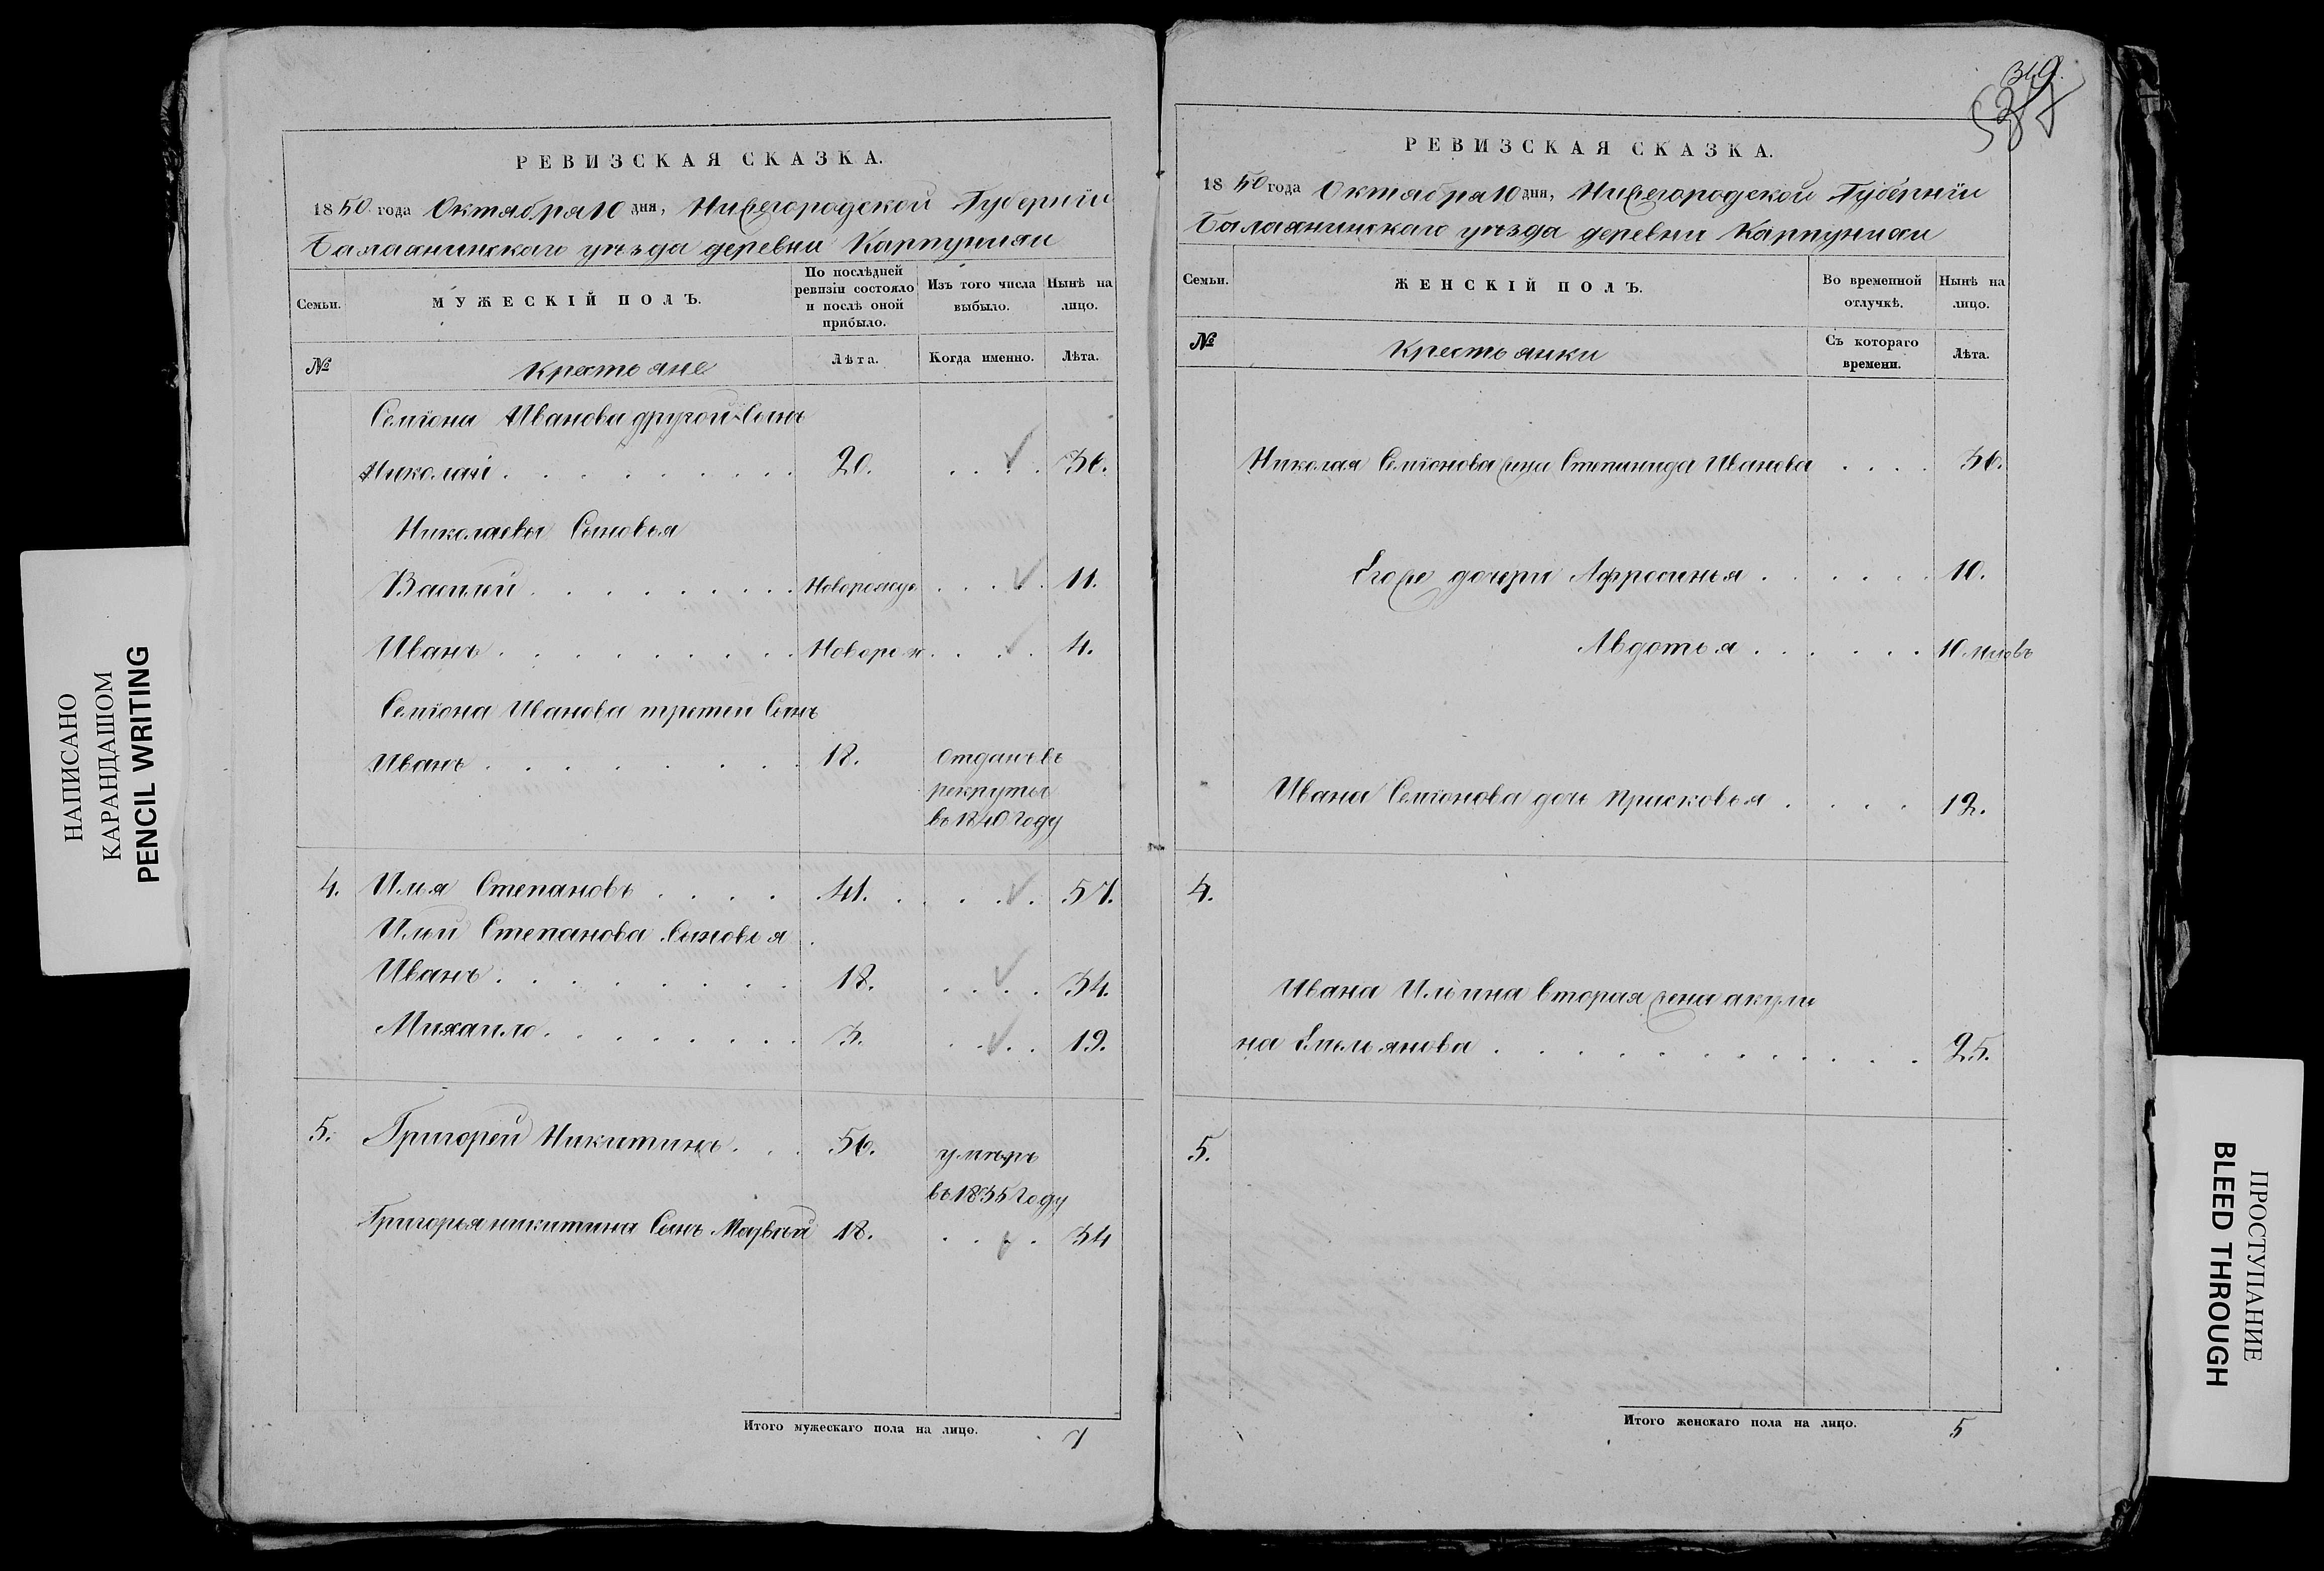 НАПИСАНО
КАРАНДАШОМ
PENCIL WRITING
РЕВИЗСКАЯ СКАЗКА.
1850 года Октября 10 дня, Нижегородской Губернїи
Балахнинскаго уѣзда деревни Карпунихи
Семьи.
МУЖЕСКІЙ ПОЛЪ.
По послѣдней ревизіи состояло и послѣ оной прибыло.
Изъ того числа выбыло.
Нынѣ на лицо.
№
Крестьяне
Лѣта.
Когда именно.
Лѣта.
Семіона Иванова другой Сынъ
Николай 20. 36.
Николаевы Сыновья
Василей Новорожд 11.
Иванъ Новорож 4.
Семіона Иванова третей Сынъ
Иванъ 18. отданъ въ
рекруты
въ 1840 году
4. Илья Степановъ 41. 57.
Ильи Степанова Сыновья
Иванъ 18. 34.
Михаило 3. 19.
5. Григорей Никитинъ 56. умеръ
въ 1835 году
Григорья никитина Сынъ 18. 34
Итого мужескаго пола на лицо. 7
349.
РЕВИЗСКАЯ СКАЗКА.
1850 года Октября 10 дня, Нижегородской Губернїи
Балахнинскаго уѣзда деревни Карпунихи
Семьи.
ЖЕНСКІЙ ПОЛЪ.
Во временной отлучкѣ.
Нынѣ на лицо.
№
Крестьянки
Съ котораго времени.
Лѣта.
Николая Семіонова жена Степанида Иванова 36.
Егоже дочери Афросинья 10.
Авдотья 10 месовъ
Ивана Семіонова дочь Прасковья 12.
4.
Ивана Ильина вторая жена акули
на Емельянова 25.
5.
Итого женскаго пола на лицо. 5
ПРОСТУПАНИЕ
BLEED THROUGH